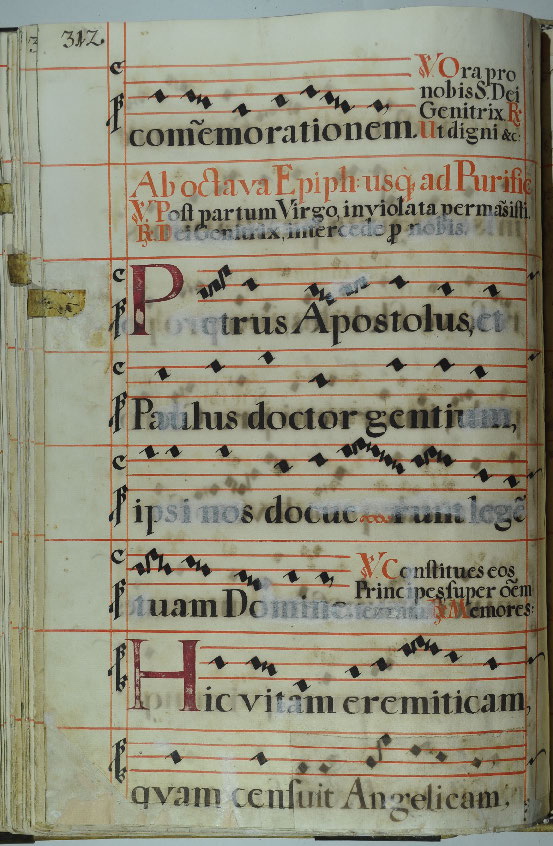 312.
℣ Ora pro
nobis S. Dei
Genitrix. ℟
com̃emorationem. Ut digni &c.
Ab octava Epiph. usq̃ ad Purific̃
℣ Post partum Virgo, inviolata permãsisti.
℟ Dei Genitrix, intercede p̱ nobis.
Petrus Apostolus, et
Paulus doctor gentium,
ipsi nos docuerunt legẽ
℣ Constitues eos
Principes super oẽm
tuam Domine. terram ℟ Memores:
Hic vitam eremiticam,
qvam censuit Angelicam,